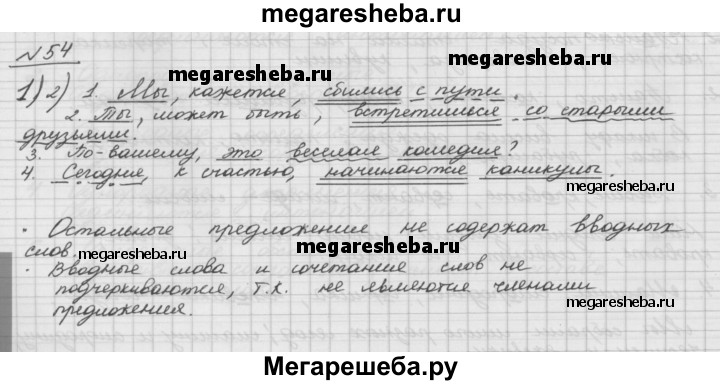 megaresheba.ru
№54
1) 2) 1. Мы, кажется, сбились с пути.
megaresheba.ru
2. Ты, может быть, встретишься со старыми
друзьями.
3. По-вашему, это веселая комедия?
megaresheba.ru
4. Сегодня, к счастью, начинаются каникулы.
megaresheba.ru
· Остальные предложения не содержат вводных
слов.
megaresheba.ru
megaresheba.ru
· Вводные слова и сочетания слов не
подчеркиваются, т.к. не являются членами
megaresheba.ru
предложения.
Мегарешеба.ру